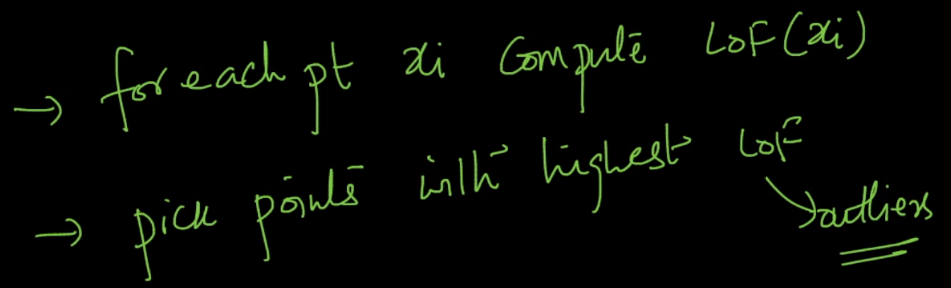 → for each pt xi Compute LOF(xi)
→ pick points with highest LOF
→ outliers